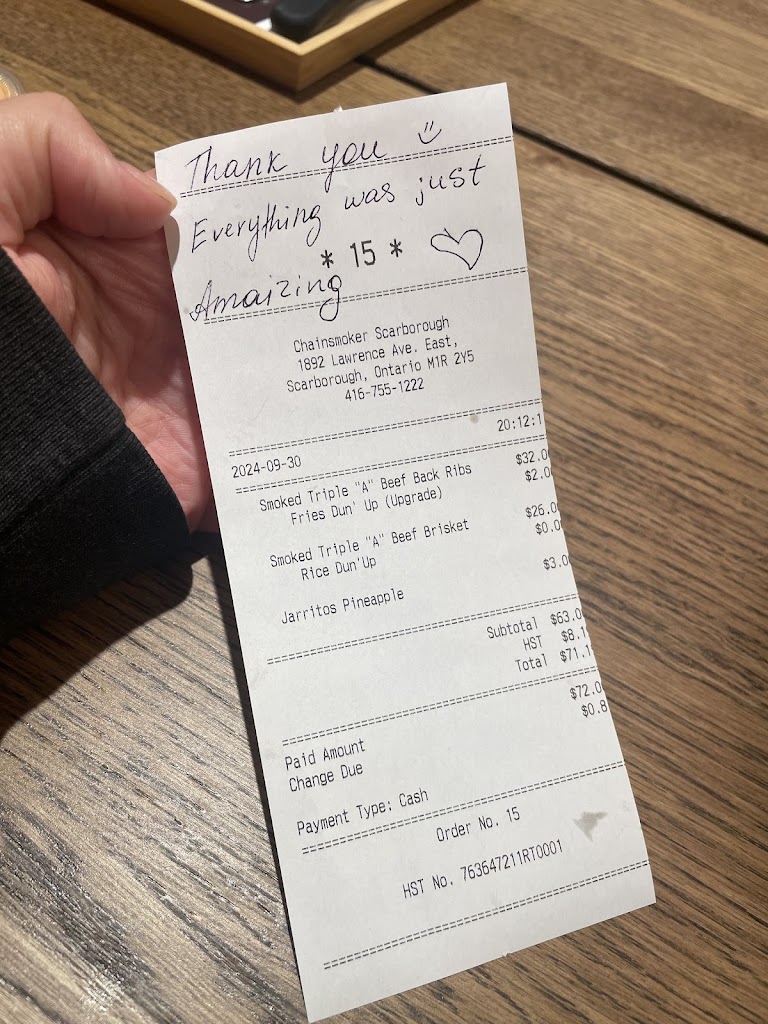 Thank you
Everything was just
* 15 *
Amaizing
Chainsmoker Scarborough
1892 Lawrence Ave. East,
Scarborough, Ontario M1R 2Y5
416-755-1222
2024-09-30 20:12:1
Smoked Triple "A" Beef Back Ribs $32.0
Fries Dun' Up (Upgrade) $2.0
Smoked Triple "A" Beef Brisket $26.0
Rice Dun'Up $0.0
Jarritos Pineapple $3.0
Subtotal $63.0
HST $8.1
Total $71.1
Paid Amount $72.0
Change Due $0.8
Payment Type: Cash
Order No. 15
HST No. 763647211RT0001